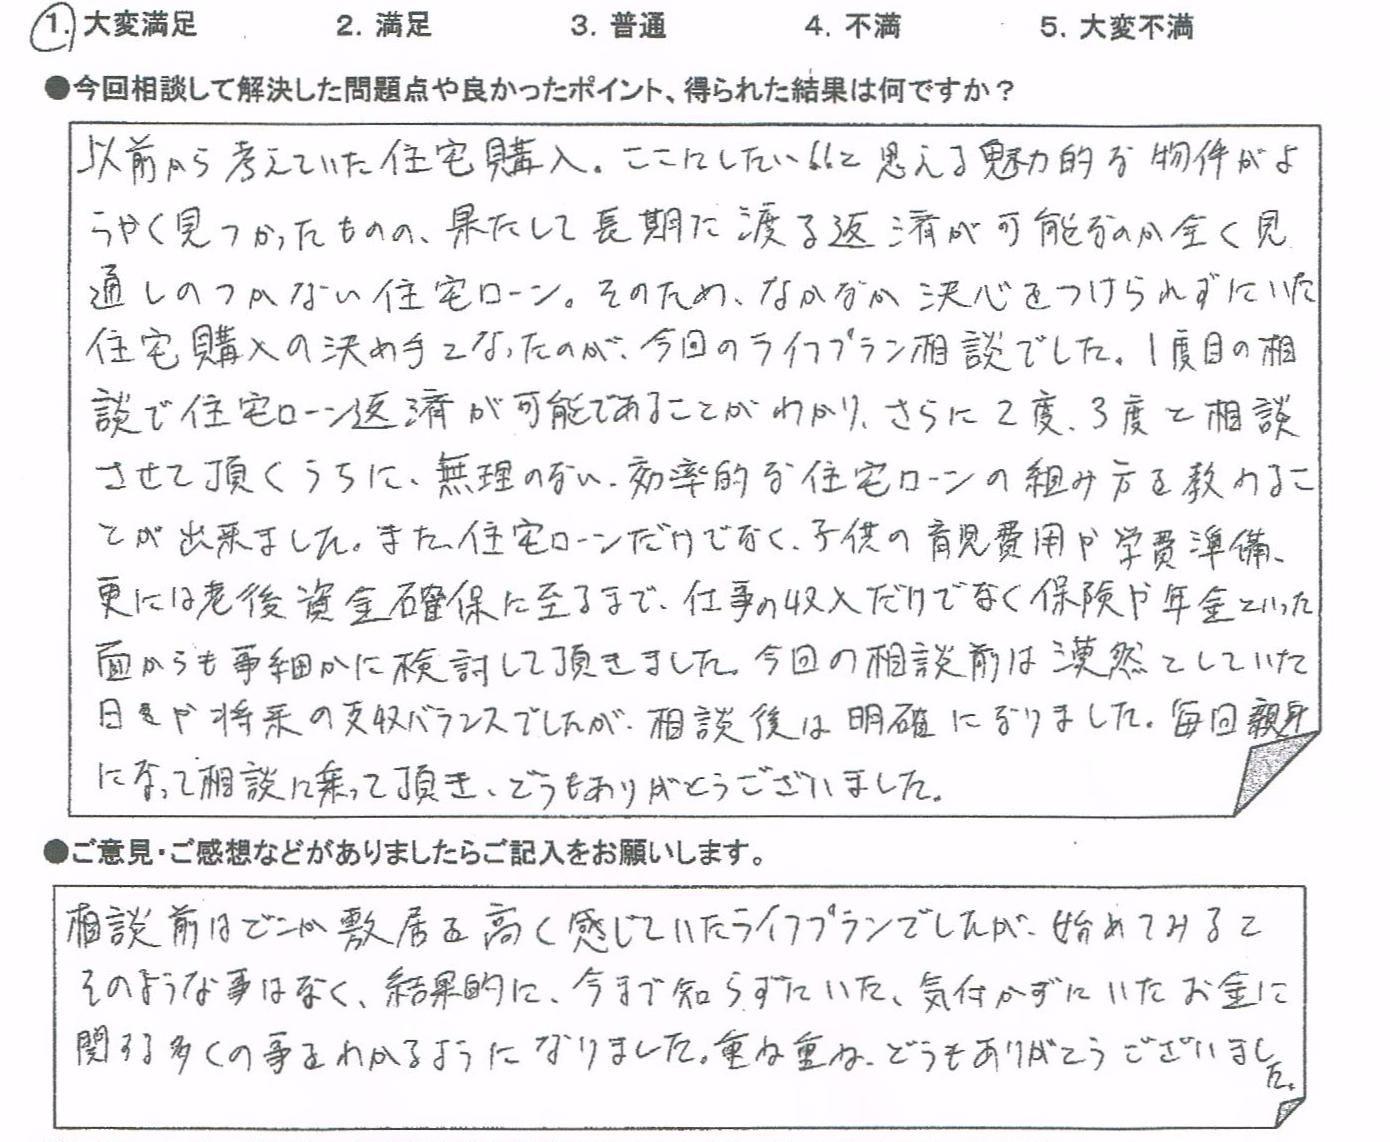 1. 大変満足 2. 満足 3. 普通 4. 不満 5. 大変不満
●今回相談して解決した問題点や良かったポイント、得られた結果は何ですか？
以前から考えていた住宅購入。ここにしたい、、と思える魅力的な物件がよ
うやく見つかったものの、果たして長期に渡る返済が可能なのか全く見
通しのつかない住宅ローン。そのため、なかなか決心をつけられずにいた
住宅購入の決め手となったのが、今回のライフプラン相談でした。1度目の相
談で住宅ローン返済が可能であることがわかり、さらに2度、3度と相談
させて頂くうちに、無理のない、効率的な住宅ローンの組み方を教わるこ
とが出来ました。また、住宅ローンだけでなく、子供の育児費用や学費準備、
更には老後資金確保に至るまで、仕事の収入だけでなく保険や年金といった
面からも事細かに検討して頂きました。今回の相談前は漠然としていた
日々や将来の支収バランスでしたが、相談後は明確になりました。毎回親身
になって相談に乗って頂き、どうもありがとうございました。
●ご意見・ご感想などがありましたらご記入をお願いします。
相談前はどこか敷居を高く感じていたライフプランでしたが、始めてみると
そのような事はなく、結果的に、今まで知らずにいた、気付かずにいたお金に
関する多くの事をわかるようになりました。重ね重ね、どうもありがとうございました。